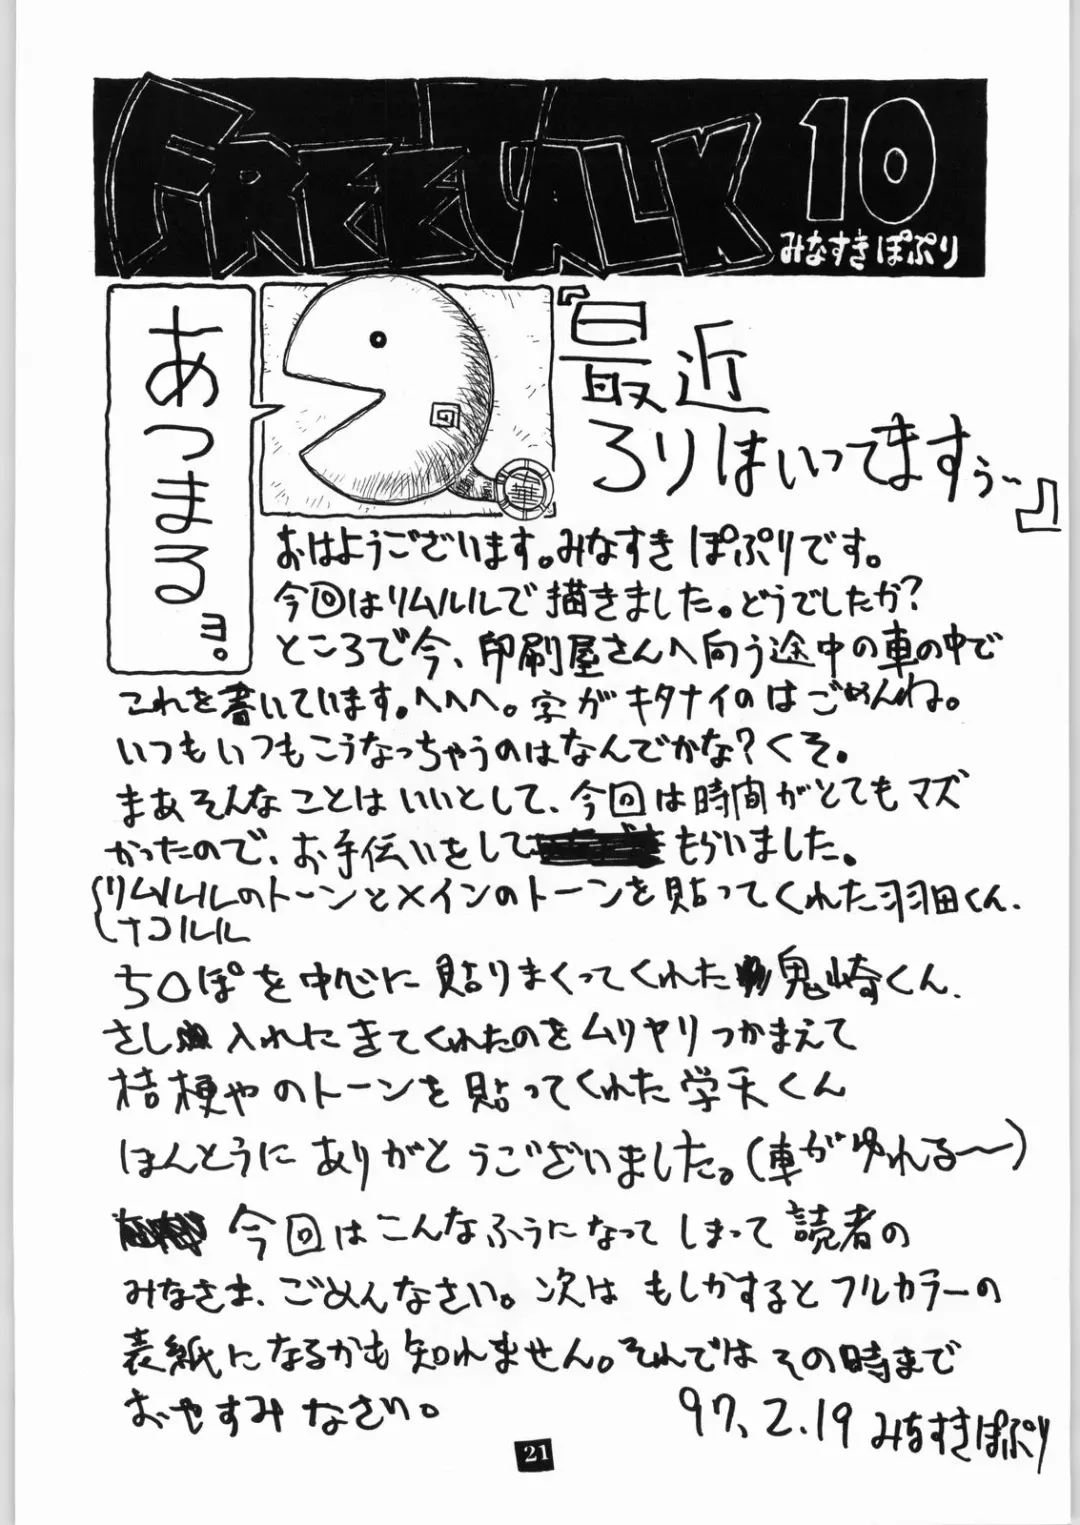 FREE TALK 10
みなすきぽぷり
あつまるヨ。
回
中華
『最近
ろりはいってますぅ〜』
おはようございます。みなすきぽぷりです。
今回はリムルルで描きました。どうでしたか?
ところで今、印刷屋さんへ向う途中の車の中で
これを書いています。へへへ。字がキタナイのはごめんね。
いつもいつもこうなっちゃうのはなんでかな?くそ。
まあそんなことはいいとして、今回は時間がとてもマズ
かったので、お手伝いをしてもらいました。
リムルルのトーンとメインのトーンを貼ってくれた羽田くん、
ナコルル
ち○ぽを中心に貼りまくってくれた鬼崎くん、
さし入れにきてくれたのをムリヤリつかまえて
桔梗やのトーンを貼ってくれた学天くん
ほんとうにありがとうございました。(車がゆれる〜)
今回はこんなふうになってしまって読者の
みなさま、ごめんなさい。次はもしかするとフルカラーの
表紙になるかも知れません。それではその時まで
おやすみなさい。
97.2.19 みなすきぽぷり
21